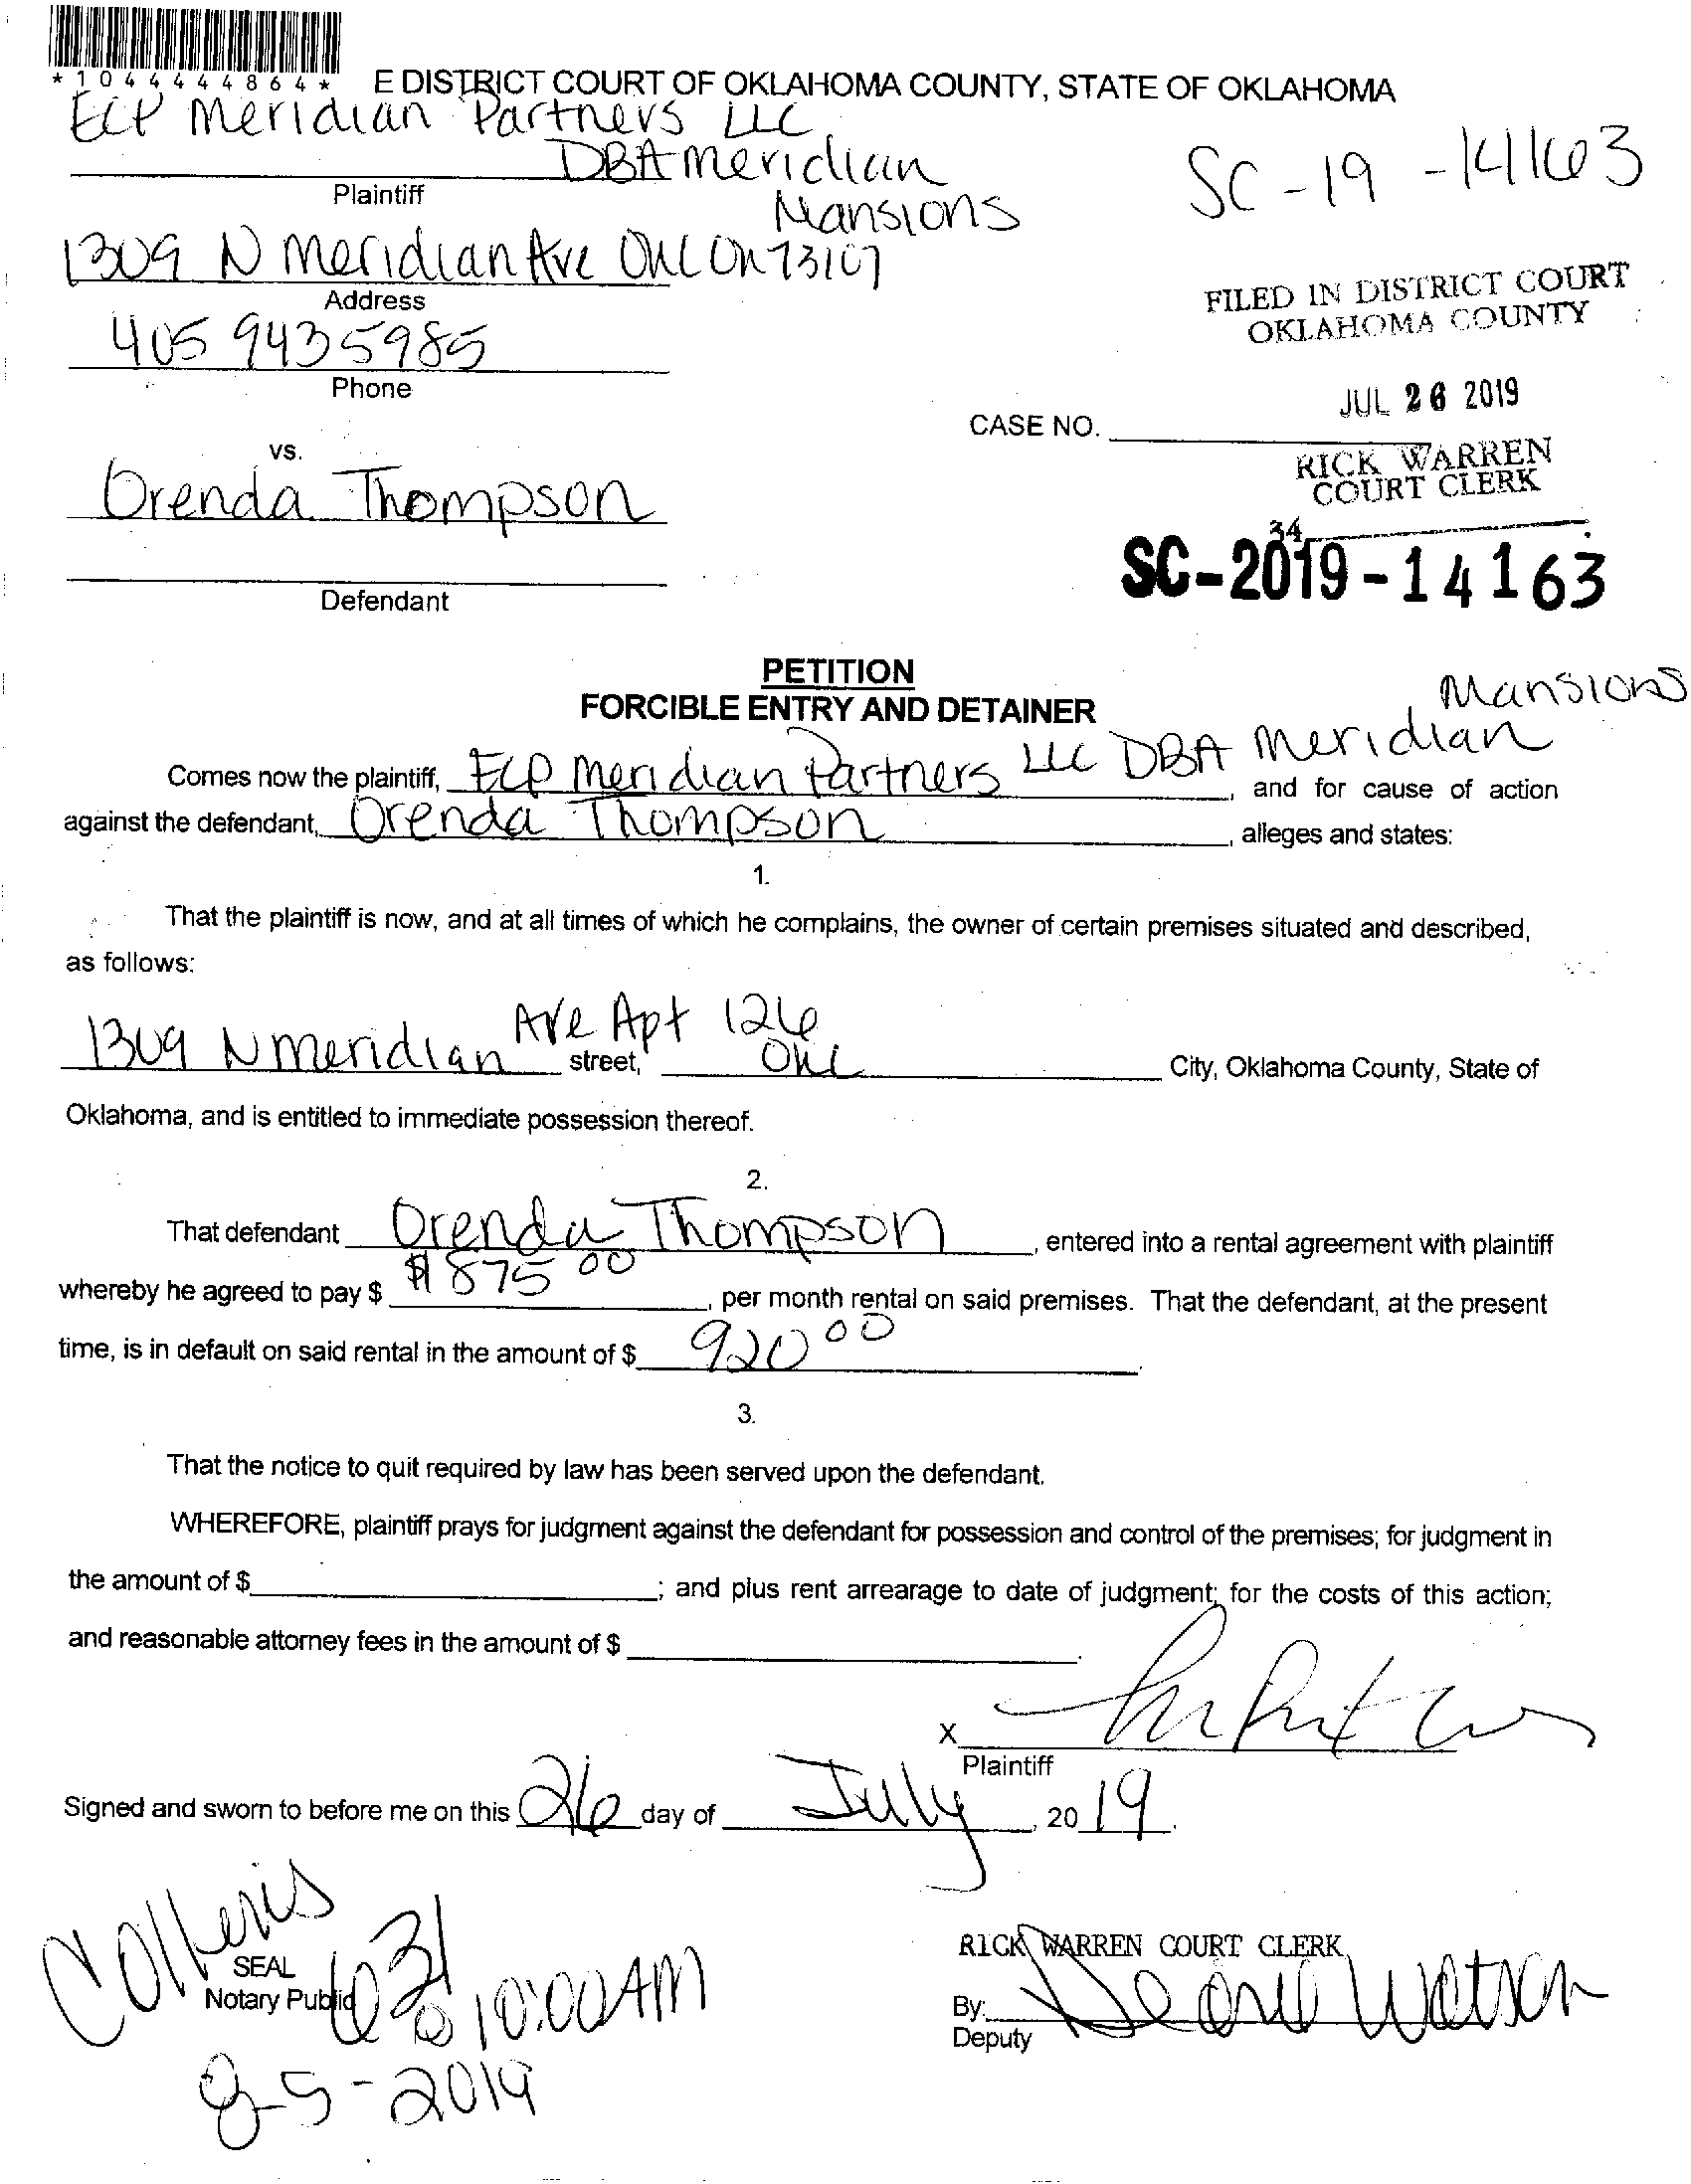 *1044444864*
E DISTRICT COURT OF OKLAHOMA COUNTY, STATE OF OKLAHOMA
ECP Meridian Partners LLC
DBA Meridian
Mansions
Plaintiff
SC-19-14163
1309 N Meridian Ave OKC OK 73107
Address
FILED IN DISTRICT COURT
OKLAHOMA COUNTY
405 943 5985
Phone
JUL 26 2019
CASE NO.
RICK WARREN
COURT CLERK
vs.
Orenda Thompson
34
SC-2019-14163
Defendant
PETITION
FORCIBLE ENTRY AND DETAINER
Mansions
Comes now the plaintiff, ECP Meridian Partners LLC DBA Meridian, and for cause of action
against the defendant, Orenda Thompson, alleges and states:
1.
That the plaintiff is now, and at all times of which he complains, the owner of certain premises situated and described,
as follows:
1309 N Meridian Ave Apt 126
street, OKC City, Oklahoma County, State of
Oklahoma, and is entitled to immediate possession thereof.
2.
That defendant Orenda Thompson, entered into a rental agreement with plaintiff
whereby he agreed to pay $ $875 00, per month rental on said premises. That the defendant, at the present
time, is in default on said rental in the amount of $ 920 00.
3.
That the notice to quit required by law has been served upon the defendant.
WHEREFORE, plaintiff prays for judgment against the defendant for possession and control of the premises; for judgment in
the amount of $; and plus rent arrearage to date of judgment; for the costs of this action;
and reasonable attorney fees in the amount of $.
X
Plaintiff
Signed and sworn to before me on this 26 day of July, 2019.
SEAL
Notary Public
631
@ 10:00 AM
8-5-2019
RICK WARREN COURT CLERK
By: Watson
Deputy